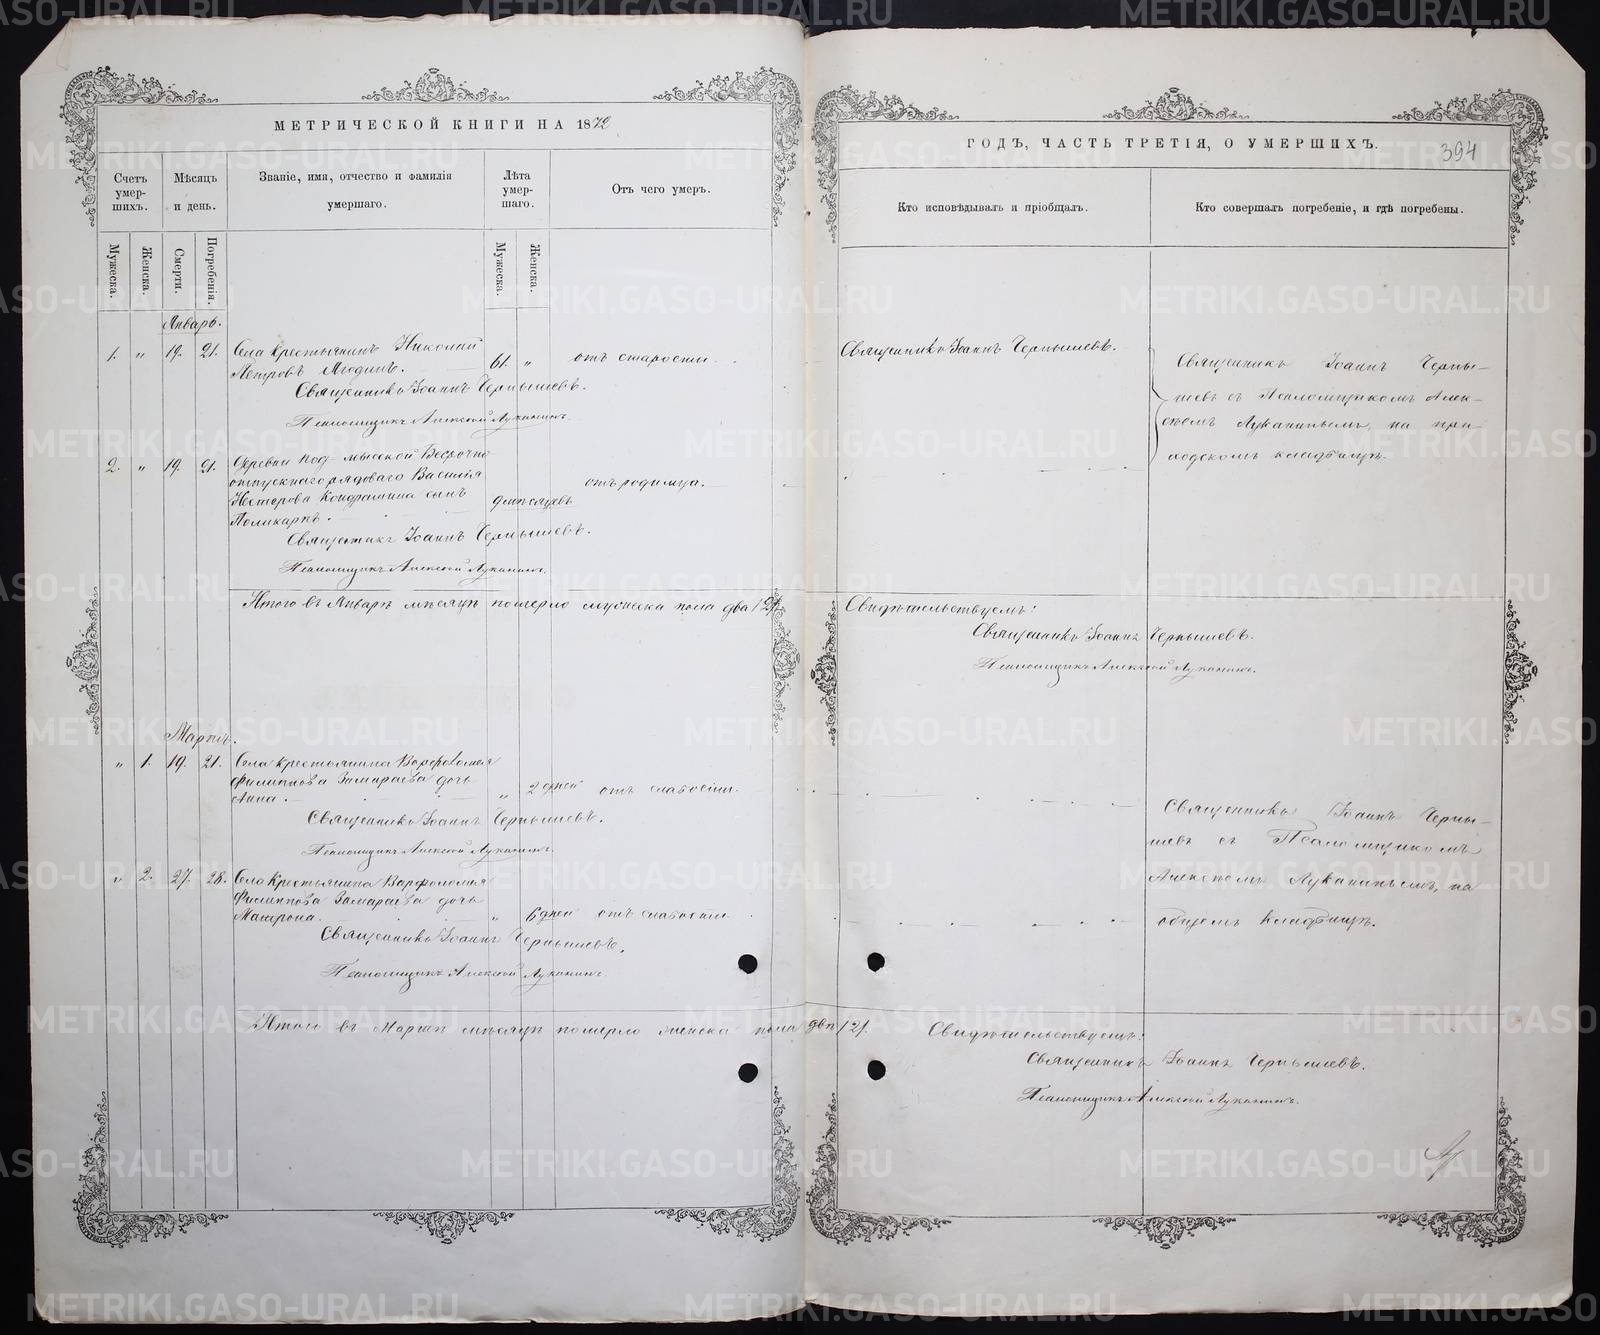 МЕТРИЧЕСКОЙ КНИГИ НА 1872
Счетъ умер-шихъ.
Мѣсяцъ и день.
Званіе, имя, отчество и фамилія умершаго.
Лѣта умер-шаго.
Отъ чего умеръ.
Мужеска.
Женска.
Смерти.
Погребенія.
Мужеска.
Женска.
Январь.
1. " 19. 21. Села крестьянинъ Николай
Петровъ 61. " отъ старости.
Священникъ Іоаннъ Чернышевъ.
Псаломщикъ Алексѣй Луканинъ.
2. " 19. 21. Деревни Под-мысской Безсрочно
отпускнаго рядоваго Василія
Нестерова Кондрашина сынъ 9 мѣсяцевъ отъ родимца.
Поликарпъ.
Священникъ Іоаннъ Чернышевъ.
Псаломщикъ Алексѣй Луканинъ.
Итого въ Январѣ мѣсяцѣ померло мужеска пола два /2/.
Мартъ.
" 1. 19. 21. Села крестьянина Варфоломея
Филиппова Замараева дочь
Анна. " 2 дней отъ слабости.
Священникъ Іоаннъ Чернышевъ.
Псаломщикъ Алексѣй Луканинъ.
" 2. 27. 28. Села Крестьянина Варфоломея
Филиппова Замараева дочь
Матрона. " 6 дней отъ слабости
Священникъ Іоаннъ Чернышевъ.
Псаломщикъ Алексѣй Луканинъ.
Итого въ Мартѣ мѣсяцѣ померло женска пола двѣ /2/.
ГОДЪ, ЧАСТЬ ТРЕТІЯ, О УМЕРШИХЪ.
394
Кто исповѣдывалъ и пріобщалъ.
Кто совершалъ погребеніе, и гдѣ погребены.
Священникъ Іоаннъ Чернышевъ.
Священникъ Іоаннъ Черны-
шевъ съ Псаломщикомъ Алек-
сѣемъ Луканинымъ, на при-
ходскомъ кладбищѣ.
Свидѣтельствуемъ:
Священникъ Іоаннъ Чернышевъ.
Псаломщикъ Алексѣй Луканинъ.
Священникъ Іоаннъ Черны-
шевъ съ Псаломщикомъ
Алексѣемъ Луканинымъ, на
общемъ кладбищѣ.
Свидѣтельствуемъ:
Священникъ Іоаннъ Чернышевъ.
Псаломщикъ Алексѣй Луканинъ.
METRIKI.GASO-URAL.RU